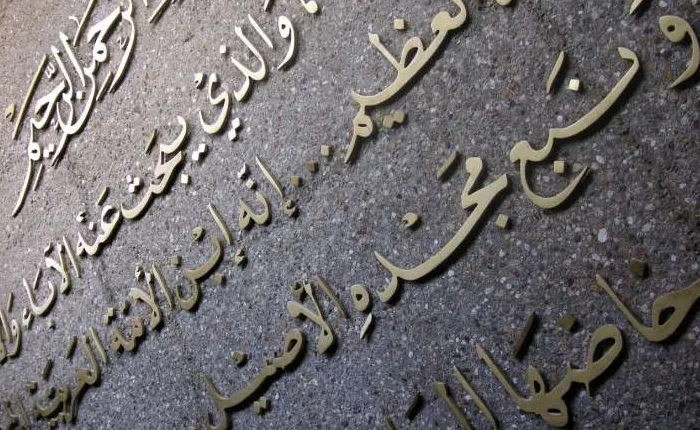 الرحمن الرحيم
والذي يبحث عنه الآباء
العظيم ... إنه ابن الأمة العربية
ونبع مجده الأصيل
خاضها